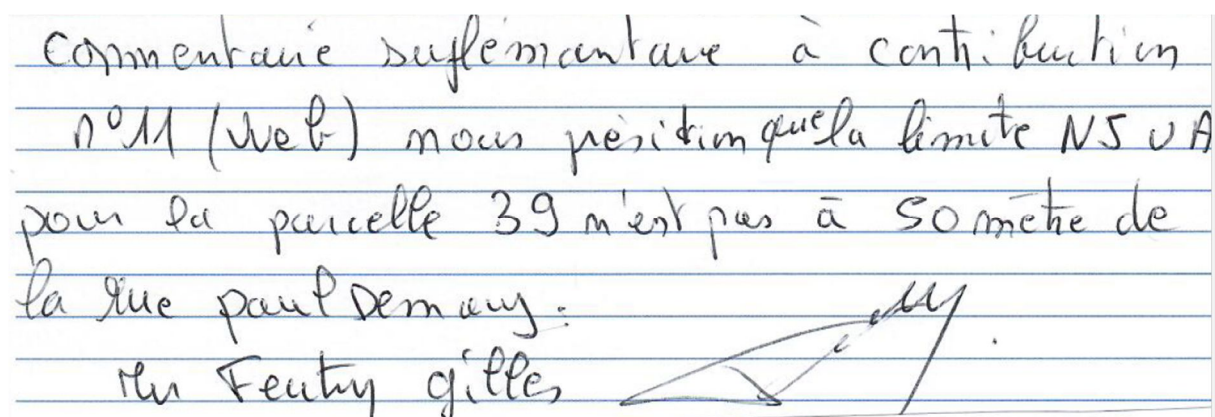 commentaire suflémantare à contribution
n°11 (Web) nous présition que la limite N5 UA
pour la parcelle 39 n'est pas à 50 mètre de
la rue paul Demany.
Mr Feutry gilles